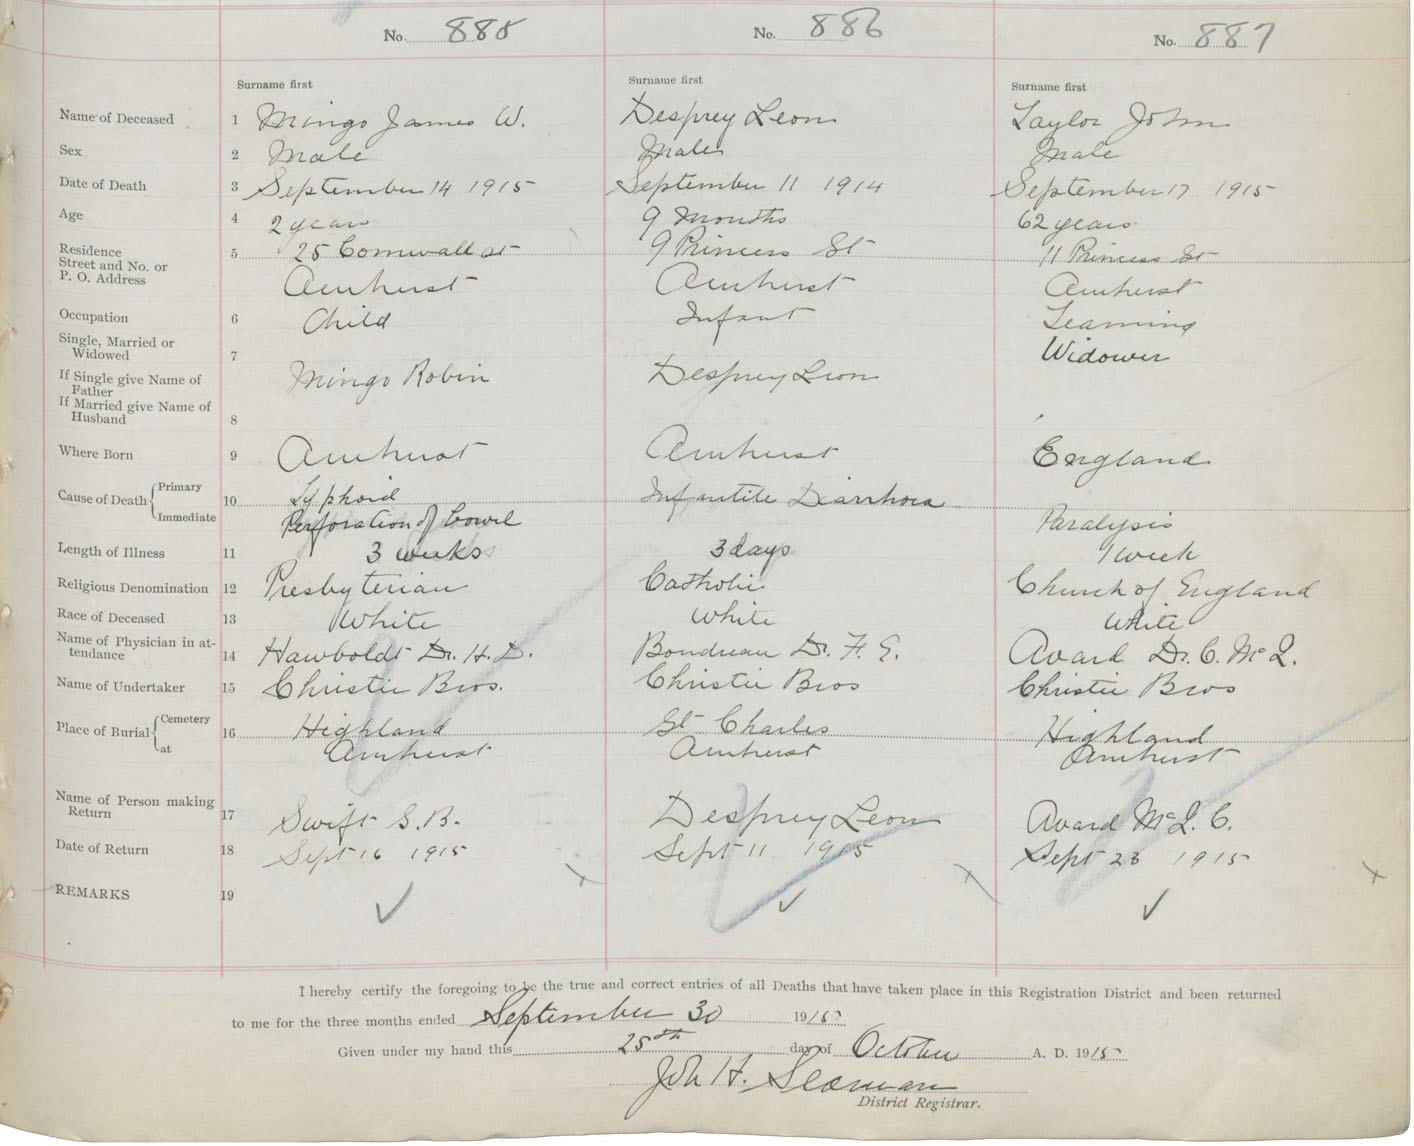 No. 885 No. 886 No. 887
Surname first Surname first Surname first
Name of Deceased 1 Mingo James W. Desprey Leon Taylor John
Sex 2 Male Male Male
Date of Death 3 September 14 1915 September 11 1914 September 17 1915
Age 4 2 years 9 Months 62 years
Residence
Street and No. or 5 25 Cornwall st 9 Princess St 11 Princess St
P. O. Address Amherst Amherst Amherst
Occupation 6 Child Infant Teaming
Single, Married or
Widowed 7 Widower
If Single give Name of Mingo Robin Desprey Leon
Father
If Married give Name of
Husband 8
Where Born 9 Amherst Amherst England
Cause of Death Primary 10 Typhoid Infantile Diarrhoea
Immediate Perforation of bowel Paralysis
Length of Illness 11 3 weeks 3 days 1 week
Religious Denomination 12 Presbyterian Catholic Church of England
Race of Deceased 13 White White White
Name of Physician in at-
tendance 14 Hawboldt Dr. H. D. Boudreau Dr. F. E. Avard Dr. C. McQ.
Name of Undertaker 15 Christie Bros. Christie Bros Christie Bros
Place of Burial Cemetery 16 Highland St Charles Highland
at Amherst Amherst Amherst
Name of Person making
Return 17 Swift S. B. Desprey Leon Avard McQ. C.
Date of Return 18 Sept 16 1915 Sept 11 1915 Sept 23 1915
REMARKS 19
I hereby certify the foregoing to be the true and correct entries of all Deaths that have taken place in this Registration District and been returned
to me for the three months ended September 30 1915
Given under my hand this 25th day of October A. D. 1915
Joh H. Seaman
District Registrar.